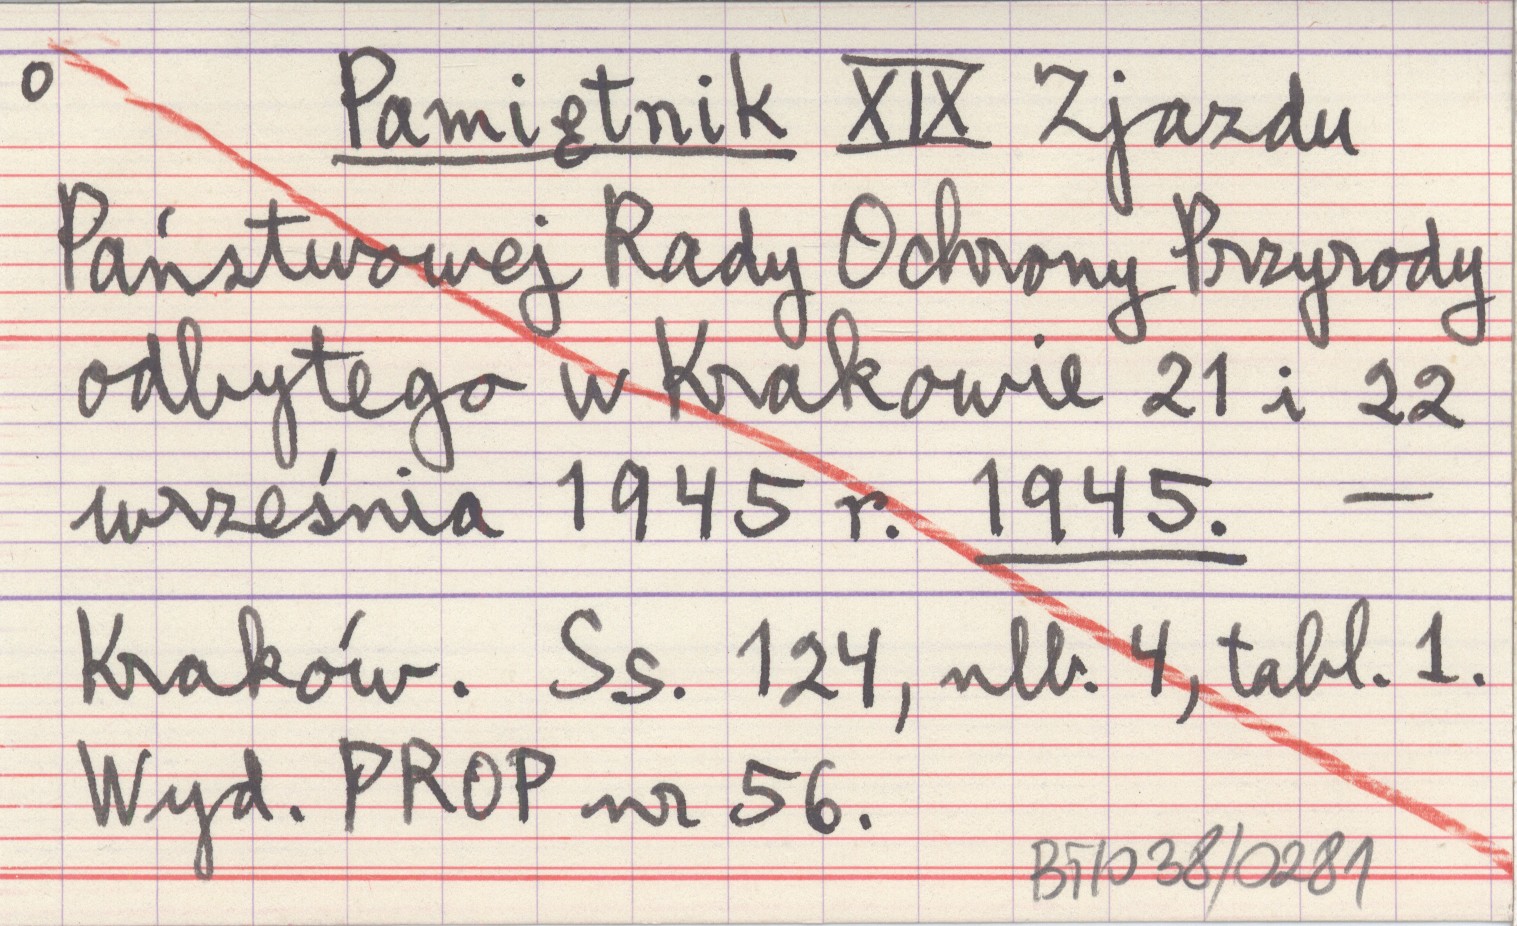 o Pamiętnik XIX Zjazdu
Państwowej Rady Ochrony Przyrody
odbytego w Krakowie 21 i 22
września 1945 r. 1945. —
Kraków. Ss. 124, nlb. 4, tabl. 1.
Wyd. PROP nr 56.
38/0281